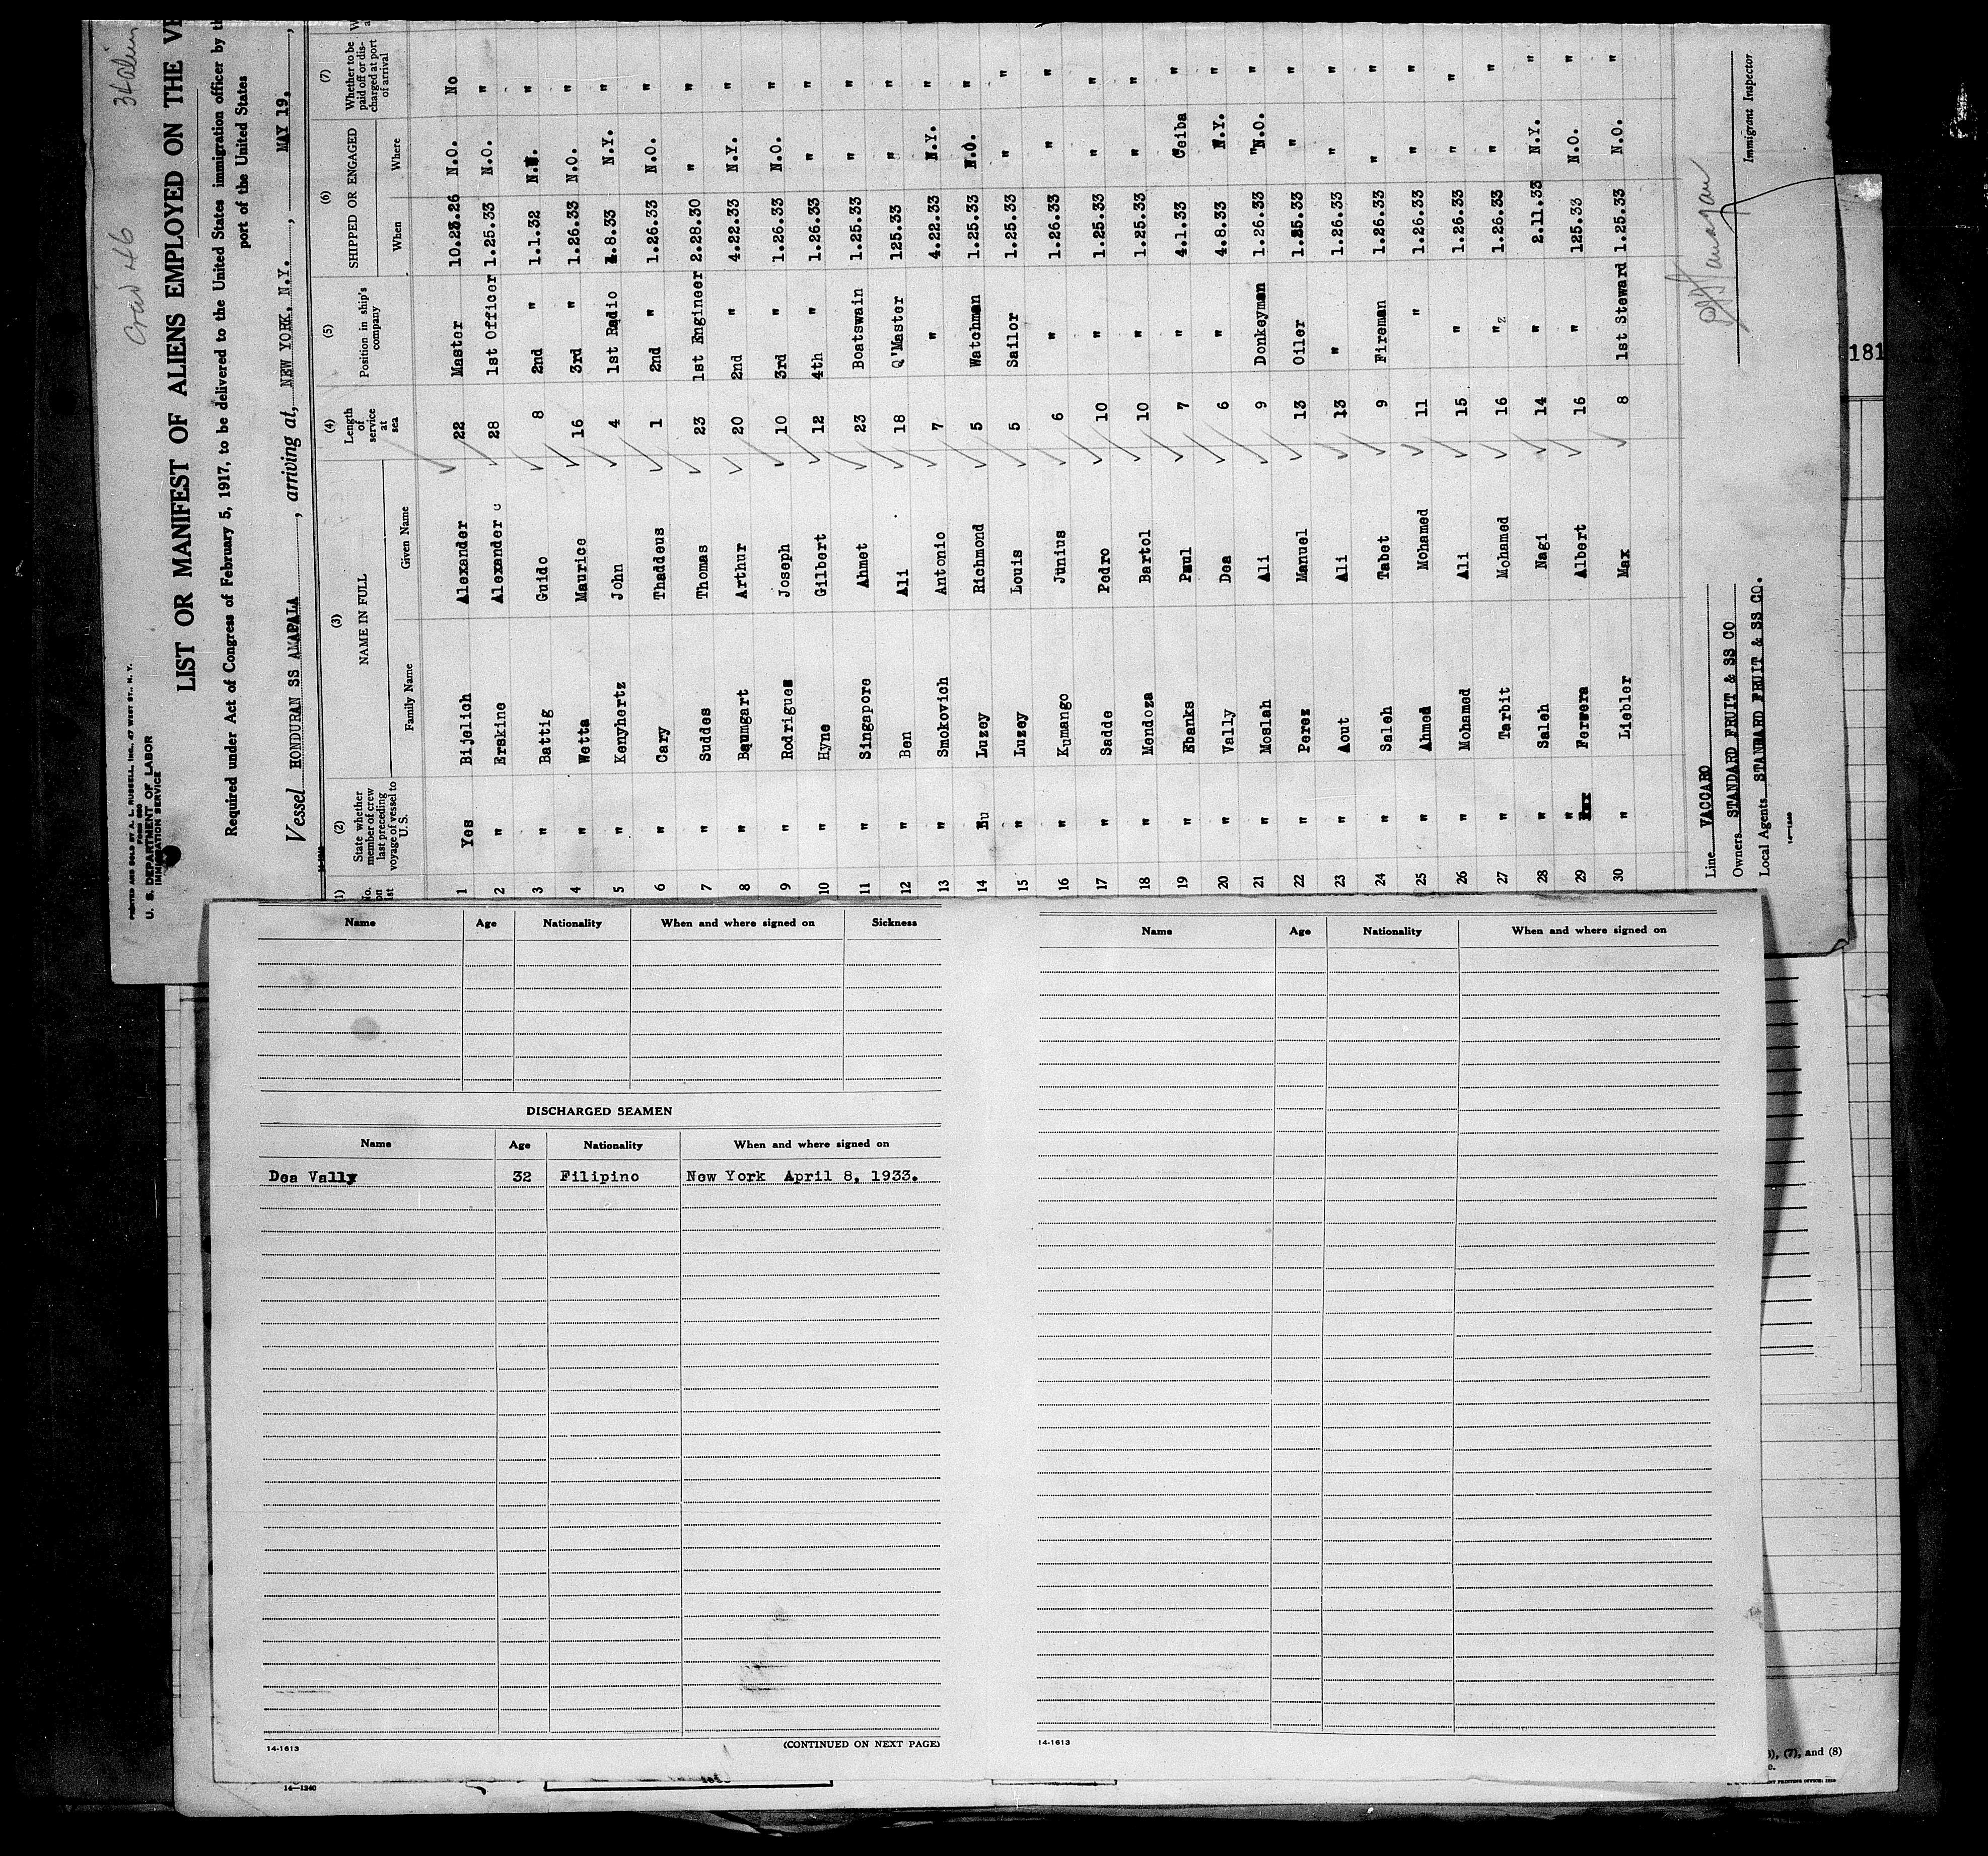 Crew 46
PRINTED AND SOLD BY A. L. RUSSELL, INC., 47 WEST ST., N. Y.
U. S. DEPARTMENT OF LABOR
IMMIGRATION SERVICE
LIST OR MANIFEST OF ALIENS EMPLOYED ON THE VE
Required under Act of Congress of February 5, 1917, to be delivered to the United States immigration officer by th
port of the United States
Vessel HONDURAN SS AMAPALA, arriving at, NEW YORK, N.Y., MAY 19,
(1) (2) (3) (4) (5) (6) (7)
No. on list State whether member of crew last preceding voyage of vessel to U.S. NAME IN FULL Family Name Given Name Length of service at sea Position in ship's company SHIPPED OR ENGAGED When Where Whether to be paid off or discharged at port of arrival
1 Yes Bijelich Alexander 22 Master 10.23.26 N.O. No
2 " Erskine Alexander C 28 1st Officer 1.25.33 N.O. "
3 " Battig Guido 8 2nd " 1.1.32 "
4 " Wetta Maurice 16 3rd " 1.26.33 N.O. "
5 " Kenyhertz John 4 1st Radio 1.8.33 N.Y. "
6 " Cary Thaddeus 1 2nd " 1.26.33 N.O. "
7 " Suddes Thomas 23 1st Engineer 2.28.30 " "
8 " Baumgart Arthur 20 2nd " 4.22.33 N.Y. "
9 " Rodrigues Joseph 10 3rd " 1.26.33 N.O. "
10 " Hyne Gilbert 12 4th " 1.26.33 " "
11 " Singapore Ahmet 23 Boatswain 1.25.33 " "
12 " Ben Ali 18 Q'Master 125.33 " "
13 " Smokovich Antonio 7 " 4.22.33 N.Y. "
14 Luzey Richmond 5 Watchman 1.25.33 N.O. "
15 " Luzey Louis 5 Sailor 1.25.33 " "
16 " Kumango Junius 6 " 1.26.33 " "
17 " Sadde Pedro 10 " 1.25.33 " "
18 " Mendoza Bartol 10 " 1.25.33 " "
19 " Ebanks Paul 7 " 4.1.33 Ceiba "
20 " Vally Dea 6 " 4.8.33 N.Y. "
21 " Moslah Ali 9 Donkeyman 1.26.33 "N.O. "
22 " Perez Manuel 13 Oiler 1.25.33 " "
23 " Aout Ali 13 " 1.26.33 " "
24 " Saleh Tabet 9 Fireman 1.26.33 " "
25 " Ahmed Mohamed 11 " 1.26.33 " "
26 " Mohamed Ali 15 " 1.26.33 " "
27 " Tarbit Mohamed 16 " 1.26.33 " "
28 " Saleh Nagi 14 " 2.11.33 N.Y. "
29 " Ferwera Albert 16 " 125.33 N.O. "
30 " Liebler Max 8 1st Steward 1.25.33 N.O. "
Line VACCARO
Owners STANDARD FRUIT & SS CO
Local Agents STANDARD FRUIT & SS CO.
14-1240
Immigrant Inspector
181
Name Age Nationality When and where signed on Sickness
DISCHARGED SEAMEN
Name Age Nationality When and where signed on
Dea Vally 32 Filipino New York April 8, 1933.
14-1613
(CONTINUED ON NEXT PAGE)
Name Age Nationality When and where signed on
14-1613
14-1240
(7), and (8)